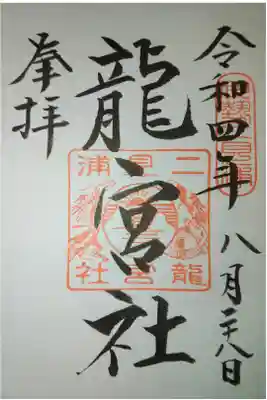 令和四年 八月二十八日
龍宮社
奉拝
二見浦
龍宮社